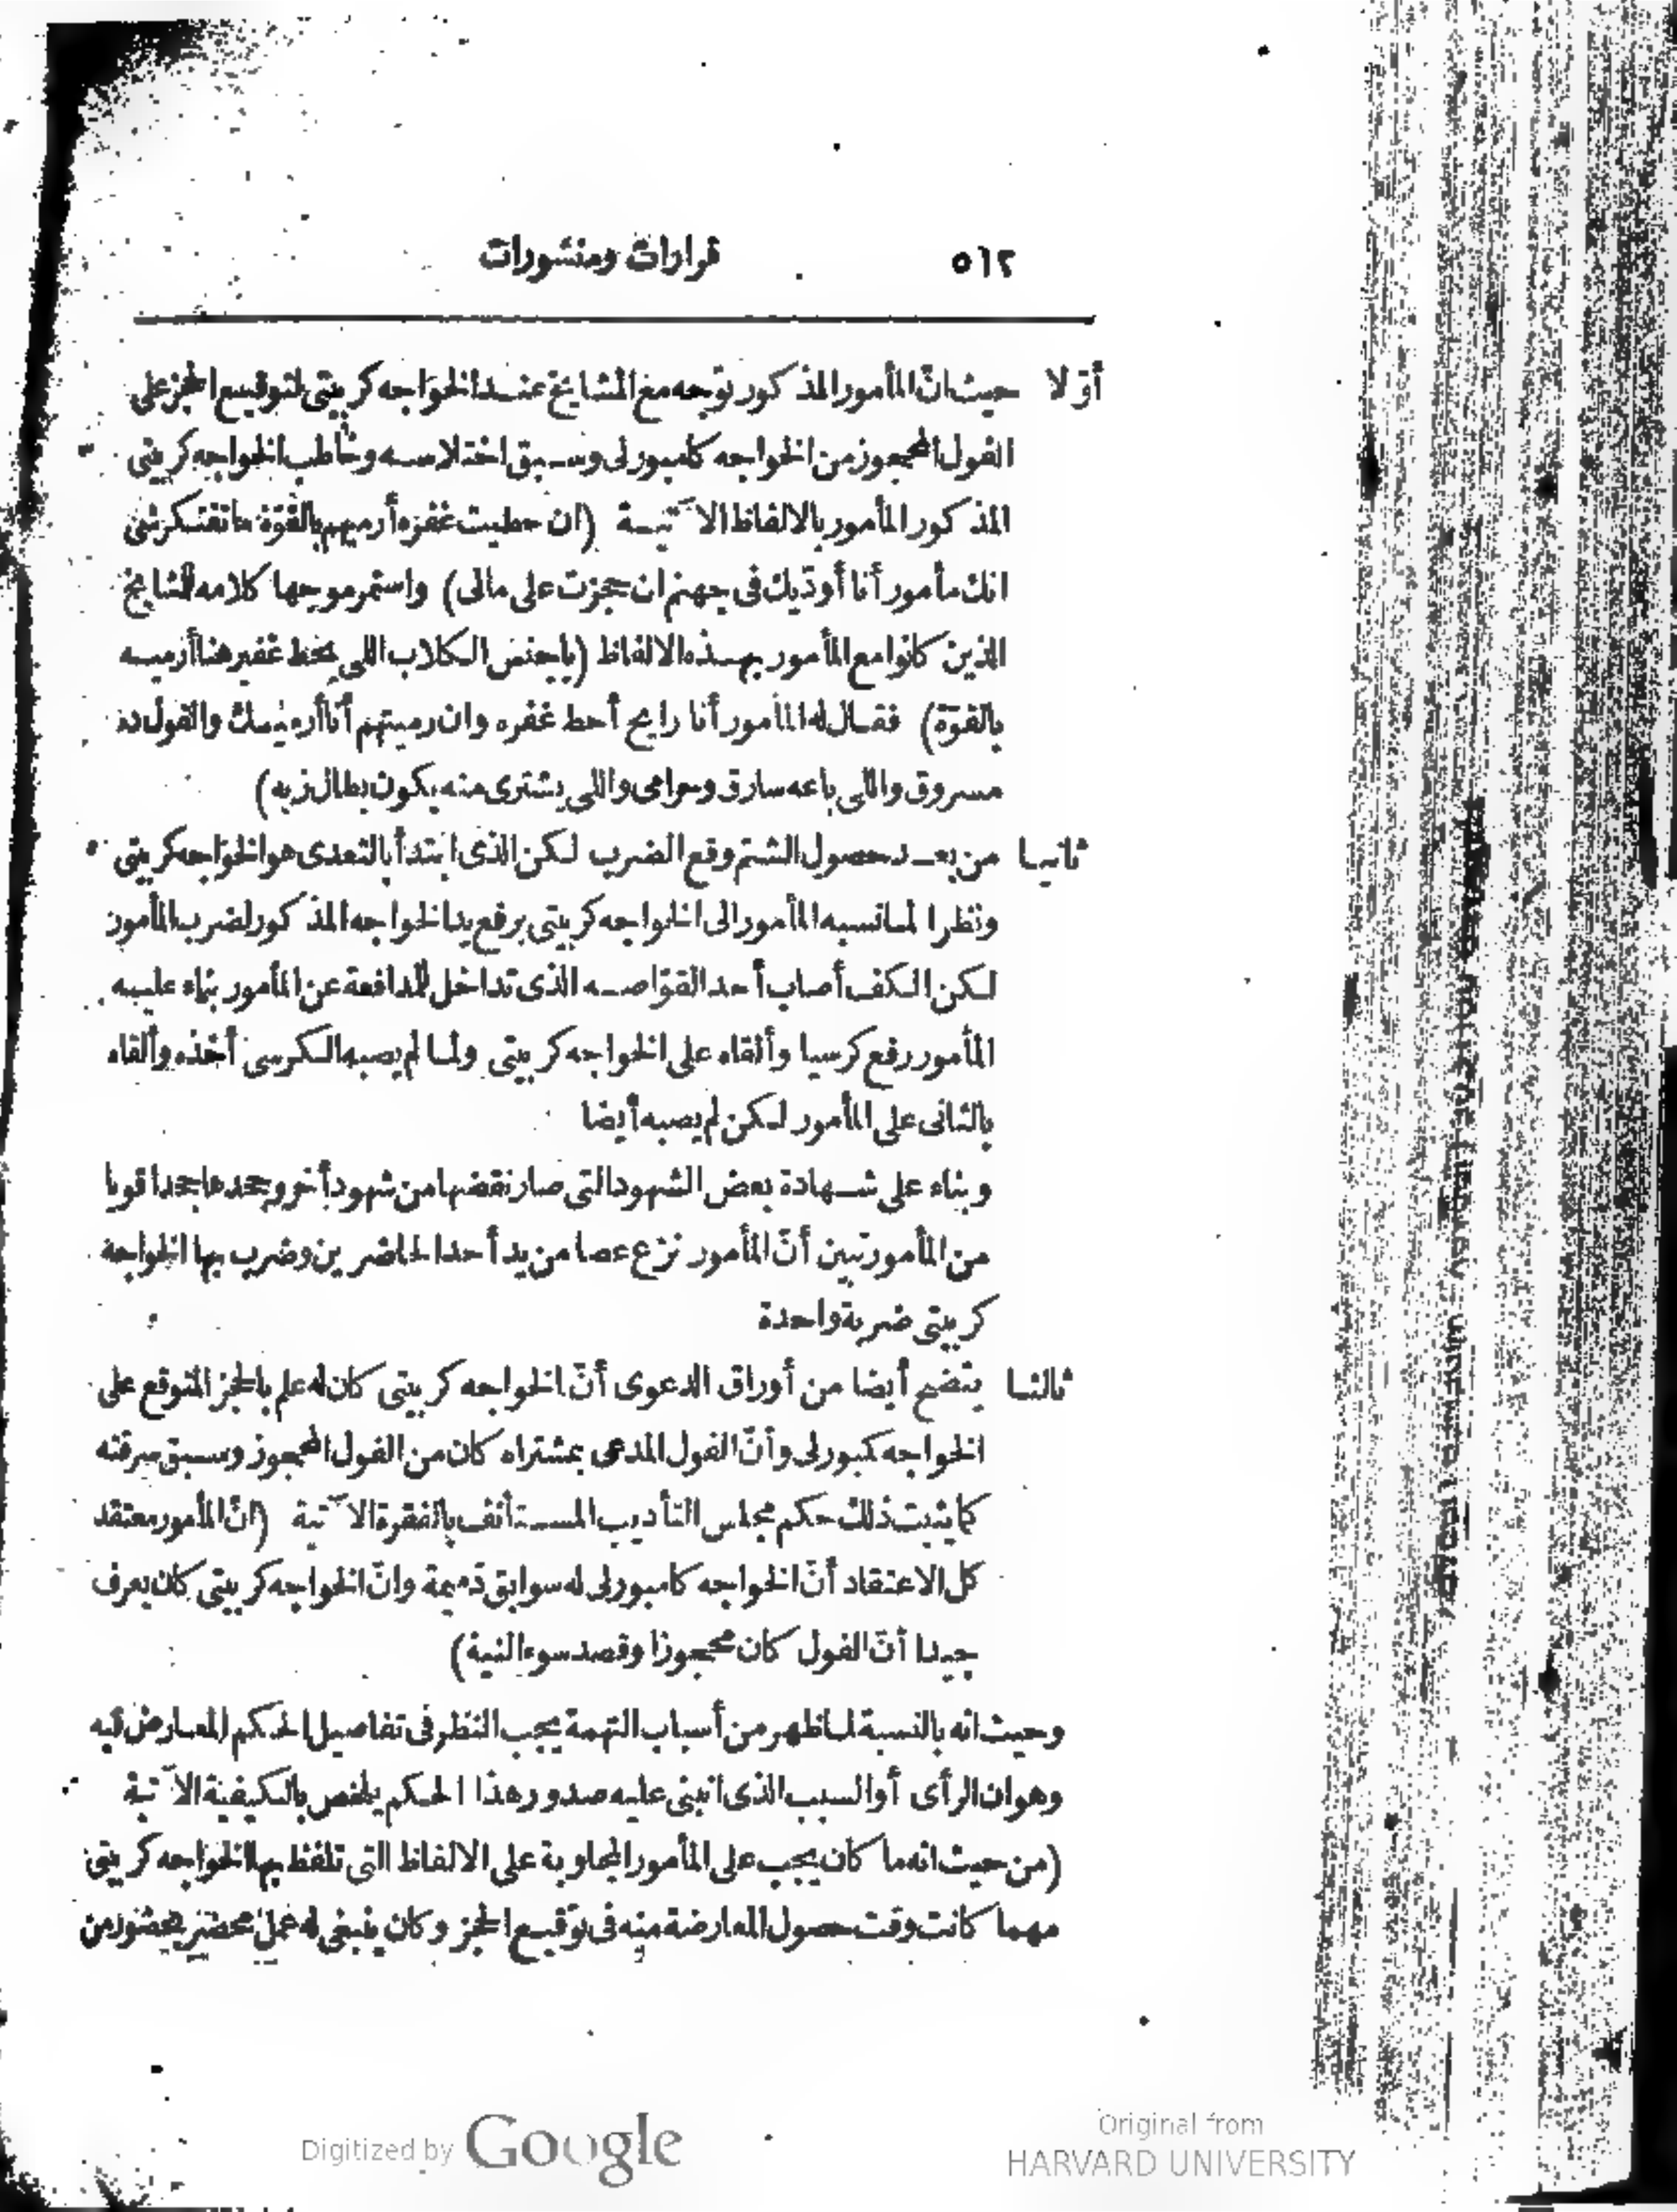 ٥١٢
قرارات ومنشورات
أولا حيث انّ المأمور المذكور توجه مع المشايخ عند الخواجه كريتى لتوقيع الحجز على
الفول المحجوز من الخواجه كامبورلى وسبق اختلاسه وخاطب الخواجه كريتى
المذكور المأمور بالالفاظ الآتية (ان حطيت غفره أرميهم بالقوّة ماتفتكرشى
انك مأمور أنا أوديك فى جهنم ان حجزت على مالى) واستمر موجها كلامه للمشايخ
الذين كانوا مع المأمور بهذه الالفاظ (ياجنس الكلاب اللى يحط غفير هنا أرميه
بالقوّة) فقال له المأمور أنا رايح أحط غفره وان رميتهم أنا أرميك والفول ده
مسروق واللى باعه سارق وحرامى واللى يشترى منه يكون بطال زيه)
ثانيا من بعد حصول الشتم وقع الضرب لكن الذى ابتدأ بالتعدى هو الخواجه كريتى
ونظرا لما نسبه المأمور الى الخواجه كريتى برفع يد الخواجه المذكور لضرب المأمور
لكن الكف أصاب أحد القوّاصه الذى تداخل للمدافعة عن المأمور بناء عليه
المأمور رفع كرسيا وألقاه على الخواجه كريتى ولما لم يصبه الكرسى أخذه وألقاه
بالثانى على المأمور لكن لم يصبه أيضا
وبناء على شهادة بعض الشهود التى صار نقضها من شهود أخر وجحدها جحدا قويا
من المأمور تبين أنّ المأمور نزع عصا من يد أحد الحاضرين وضرب بها الخواجة
كريتى ضربة واحدة
ثالثا يتضح أيضا من أوراق الدعوى أنّ الخواجه كريتى كان له علم بالحجز المتوقع على
الخواجه كمبورلى وأنّ الفول المدعى بمشتراه كان من الفول المحجوز وسبق سرقته
كما يثبت ذلك حكم مجلس التأديب المستأنف بالفقرة الآتية (انّ المأمور معتقد
كل الاعتقاد أنّ الخواجه كامبورلى له سوابق ذميمة وانّ الخواجه كريتى كان يعرف
جيدا أنّ الفول كان محجوزا وقصد سوء النية)
وحيث انه بالنسبة لما ظهر من أسباب التهمة يجب النظر فى تفاصيل الحكم المعارض فيه
وهو ان الرأى أو السبب الذى انبنى عليه صدور هذا الحكم يلخص بالكيفية الآتية
(من حيث انه ما كان يجب على المأمور المجاوبة على الالفاظ التى تلفظ بها الخواجه كريتى
مهما كانت وقت حصول المعارضة منه فى توقيع الحجز وكان ينبغى له عمل محضر بحضور من
Digitized by Google
Original from
HARVARD UNIVERSITY